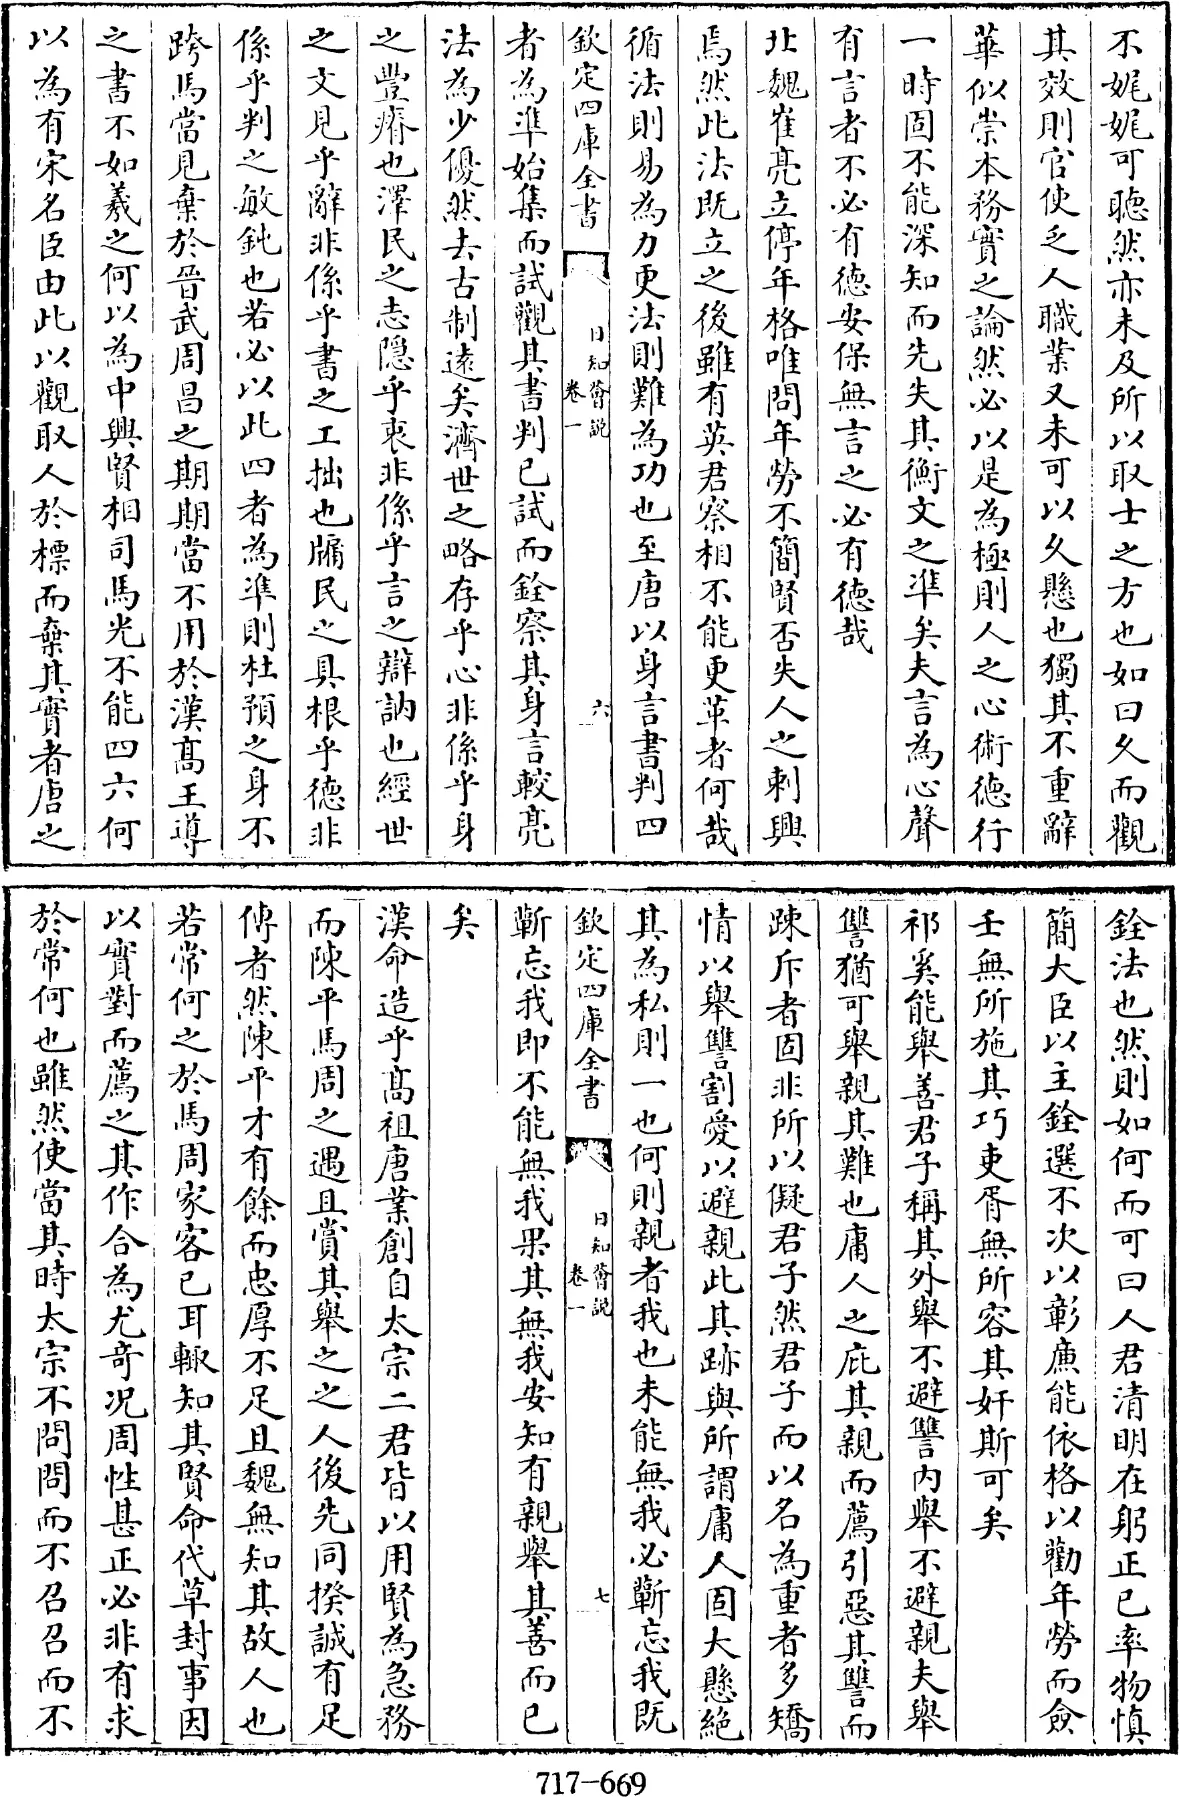 不娓娓可聽然亦未及所以取士之方也如曰久而觀
其效則官使乏人職業又未可以久懸也獨其不重辭
華似崇本務實之論然必以是為極則人之心術德行
一時固不能深知而先失其衡文之準矣夫言為心聲
有言者不必有德安保無言之必有德哉
北魏崔亮立停年格唯問年勞不簡賢否失人之刺興
焉然此法既立之後雖有英君察相不能更革者何哉
循法則易為力更法則難為功也至唐以身言書判四
欽定四庫全書 日知薈説 卷一 六
者為準始集而試觀其書判已試而銓察其身言較亮
法為少優然去古制遠矣濟世之略存乎心非係乎身
之豐瘠也澤民之志隱乎衷非係乎言之辯訥也經世
之文見乎辭非係乎書之工拙也牖民之具根乎德非
係乎判之敏鈍也若必以此四者為準則杜預之身不
跨馬當見棄於晉武周昌之期期當不用於漢髙王導
之書不如羲之何以為中興賢相司馬光不能四六何
以為有宋名臣由此以觀取人於標而棄其實者唐之
銓法也然則如何而可曰人君清明在躬正已率物慎
簡大臣以主銓選不次以彰亷能依格以勸年勞而僉
壬無所施其巧吏胥無所容其奸斯可矣
祁奚能舉善君子稱其外舉不避讐内舉不避親夫舉
讐猶可舉親其難也庸人之庇其親而薦引惡其讐而
疎斥者固非所以儗君子然君子而以名為重者多矯
情以舉讐割愛以避親此其跡與所謂庸人固大懸絶
其為私則一也何則親者我也未能無我必蘄忘我既
欽定四庫全書 日知薈説 卷一 七
蘄忘我即不能無我果其無我安知有親舉其善而已
矣
漢命造乎髙祖唐業創自太宗二君皆以用賢為急務
而陳平馬周之遇且賞其舉之之人後先同揆誠有足
傳者然陳平才有餘而忠厚不足且魏無知其故人也
若常何之於馬周家客已耳輙知其賢命代草封事因
以實對而薦之其作合為尤奇况周性甚正必非有求
於常何也雖然使當其時太宗不問問而不召召而不
717-669